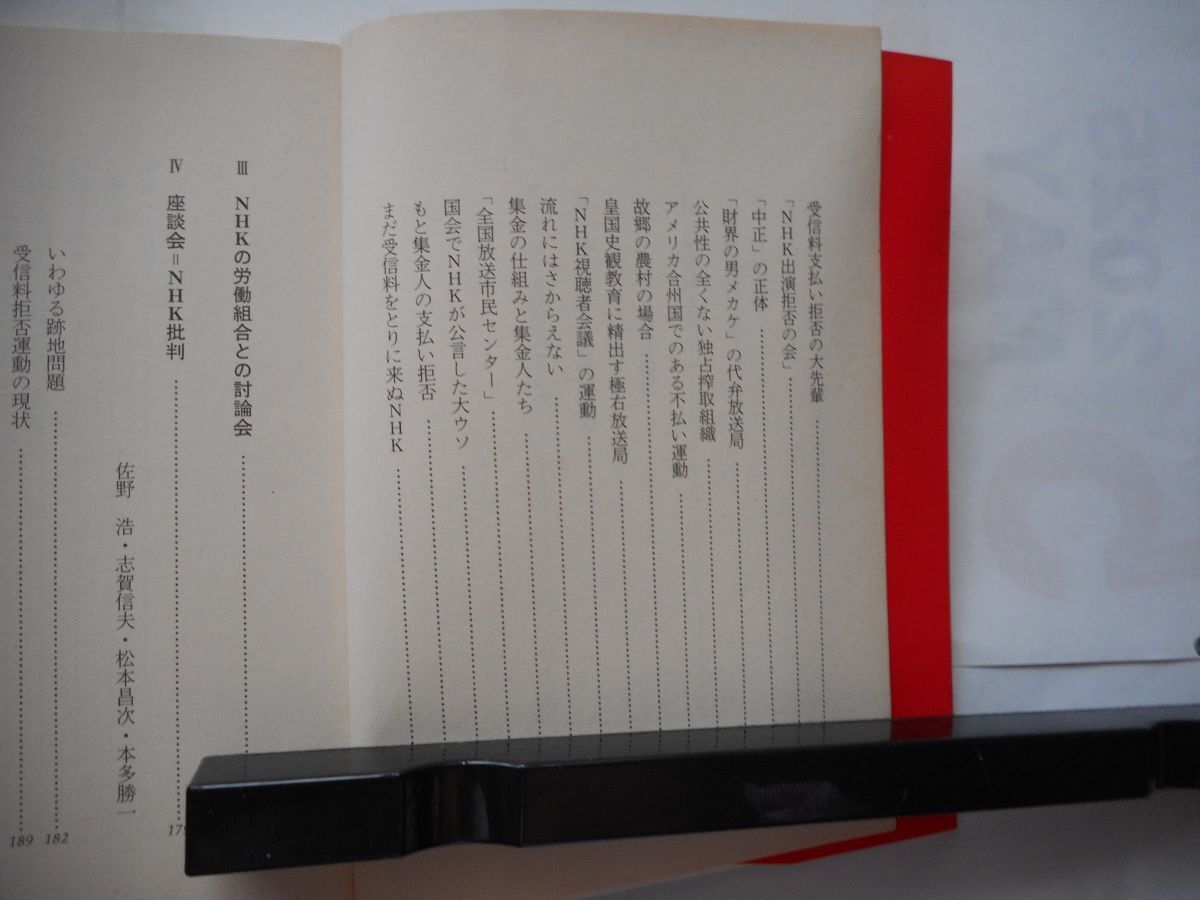 受信料支払い拒否の大先輩
「NHK出演拒否の会」
「中正」の正体
「財界の男メカケ」の代弁放送局
公共性の全くない独占搾取組織
アメリカ合州国でのある不払い運動
故郷の農村の場合
皇国史観教育に精出す極右放送局
「NHK視聴者会議」の運動
流れにはさからえない
集金の仕組みと集金人たち
「全国放送市民センター」
国会でNHKが公言した大ウソ
もと集金人の支払い拒否
まだ受信料をとりに来ぬNHK
Ⅲ NHKの労働組合との討論会
Ⅳ 座談会=NHK批判
佐野 浩・志賀信夫・松本昌次・本多勝一
いわゆる跡地問題 182
受信料拒否運動の現状 189